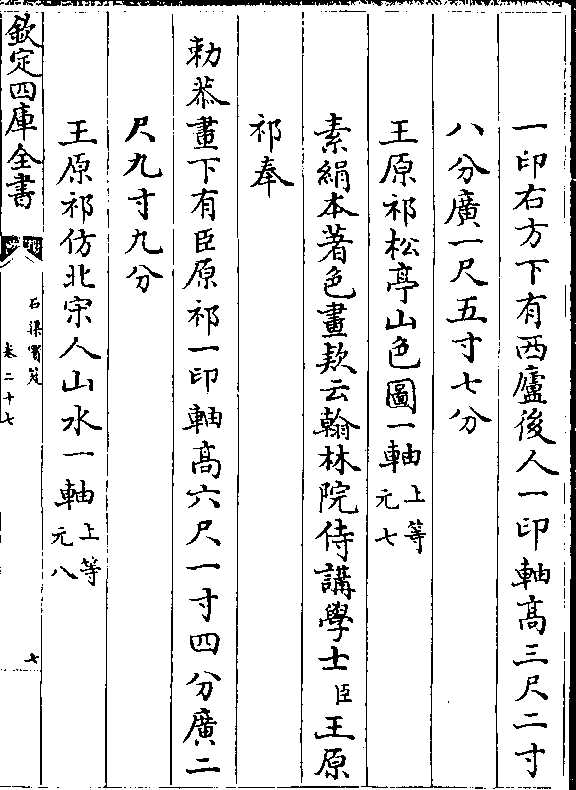 一印右方下有西廬後人一印軸高三尺二寸
八分廣一尺五寸七分
王原祁松亭山色圖一軸上等元七
素絹本著色畫款云翰林院侍講學士臣王原
祁奉
勅恭畫下有臣原祁一印軸高六尺一寸四分廣二
尺九寸九分
王原祁仿北宋人山水一軸上等元八
欽定四庫全書
石渠寶笈
卷二十七
七